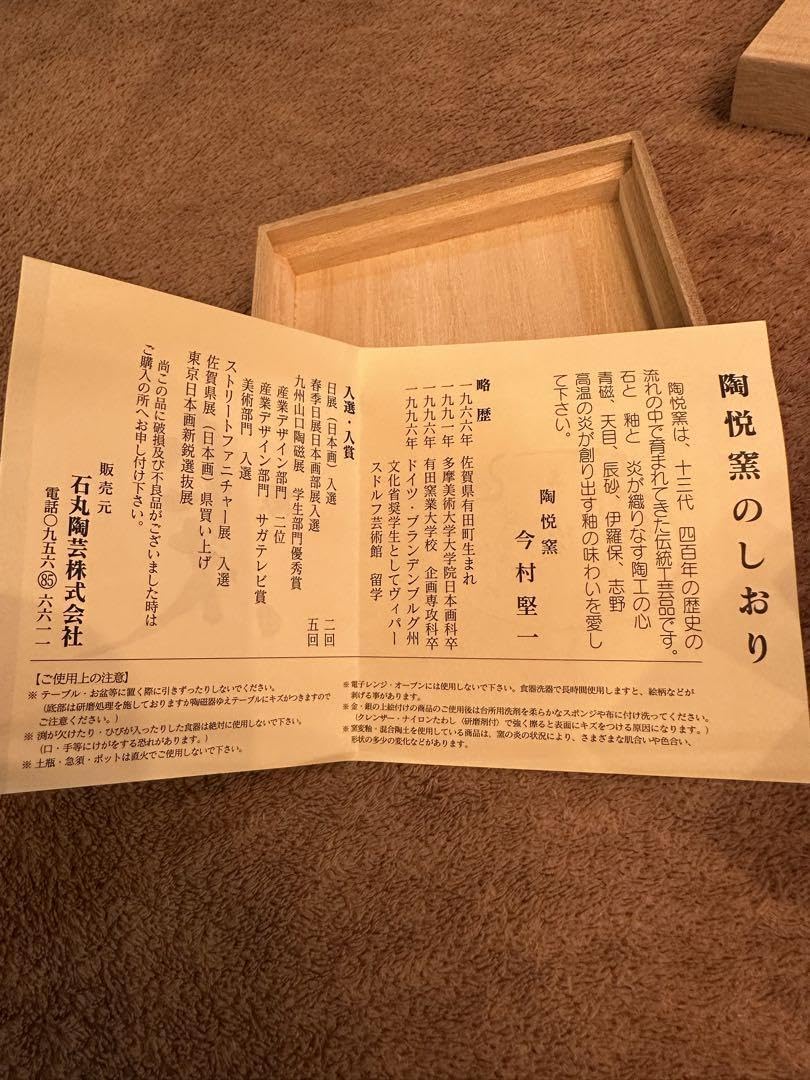 陶悦窯のしおり
陶悦窯は、十三代　四百年の歴史の
流れの中で育まれてきた伝統工芸品です。
石と　釉と　炎が織りなす陶工の心
青磁、天目、辰砂、伊羅保、志野
高温の炎が創り出す釉の味わいを愛し
て下さい。
陶悦窯
今村堅一
略歴
一九六六年　佐賀県有田町生まれ
一九九一年　多摩美術大学大学院日本画科卒
一九九六年　有田窯業大学校　企画専攻科卒
一九九六年　ドイツ・ブランデンブルグ州
文化省奨学生としてヴィパー
スドルフ芸術館　留学
入選・入賞
日展（日本画）入選　二回
春季日展日本画部展入選　五回
九州山口陶磁展　学生部門優秀賞
産業デザイン部門　二位
産業デザイン部門　サガテレビ賞
美術部門　入選
ストリートファニチャー展　入選
佐賀県展（日本画）県買い上げ
東京日本画新鋭選抜展
尚この品に破損及び不良品がございました時は
ご購入の所へお申し付け下さい。
販売元
石丸陶芸株式会社
電話〇九五六㊇㊄六六一一
【ご使用上の注意】
※テーブル・お盆等に置く際に引きずったりしないでください。
（底部は研磨処理を施しておりますが陶磁器ゆえテーブルにキズがつきますので
ご注意ください。）
※渕が欠けたり・ひびが入ったりした食器は絶対に使用しないで下さい。
（口・手等にけがをする恐れがあります。）
※土瓶・急須・ポットは直火でご使用しないで下さい。
※電子レンジ・オーブンには使用しないで下さい。食器洗器で長時間使用しますと、絵柄などが
剥げる事があります。
※金・銀の上絵付けの商品のご使用後は台所用洗剤を柔らかなスポンジや布に付け洗ってください。
（クレンザー・ナイロンたわし（研磨剤付）で強く擦ると表面にキズをつける原因になります。）
※窯変釉・混合陶土を使用している商品は、窯の炎の状況により、さまざまな肌合いや色合い、
形状の多少の変化などがあります。